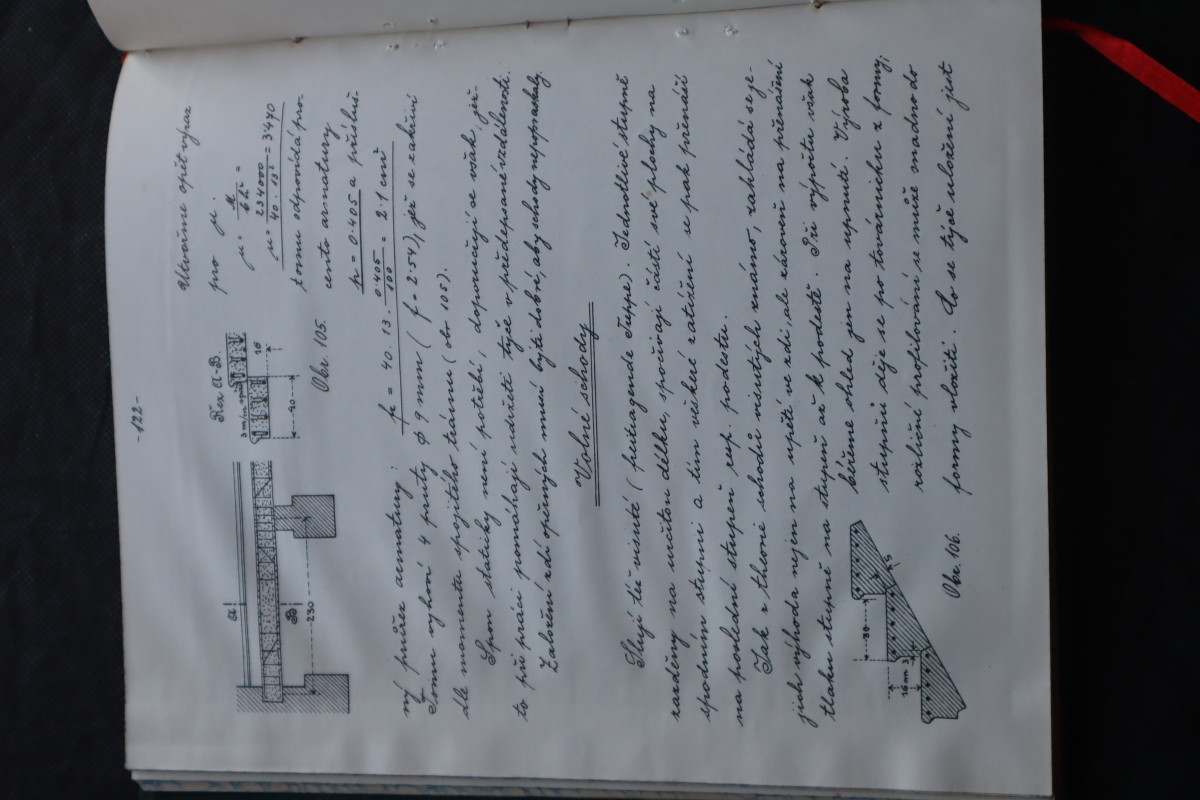 -122-
Řez A-B.
3 m/m spára
16
40
Obr. 105.
A
B
230
Utvořme opět výraz
pro μ.
μ = M / b h² =
μ = 234000 / 40 . 13² = 3470
tomu odpovídá pro-
cento armatury
p = 0.405 a přísluš-
ný průřez armatury:
p = 40 . 13 . 0.405 / 100 = 2.1 cm²
Tomu vyhoví 4 pruty ϕ 9 mm ( f = 2.54), jež se zakřiví
dle momentu spojitého trámu ( obr. 105).
Spon staticky není potřebí, doporučují se však, jež-
to při práci pomáhají udržeti tyče v předepsané vzdálenosti.
Založení zdí opěrných musí býti dobré, aby schody nepopraskaly.
Volné schody
Slují též visuté ( freitragende Treppe). Jednotlivé stupně
zazděny na určitou délku, spočívají částí své plochy na
spodním stupni a tím veškeré zatížení se pak přenáší
na poslední stupeň resp. podestu.
Jak z theorie schodů visutých známo, zakládá se je-
jich výhoda nejen na vpětí ve zdi, ale zároveň na přenášení
tlaku stupně na stupeň až k podestě. Při výpočtu však
béřeme ohled jen na vpnutí. Výroba
stupňů děje se po továrnicku z formy,
rozličné profilování se může snadno do
formy vložiti. Co se týče uložení jest
30
16
mm 3
5
Obr. 106.